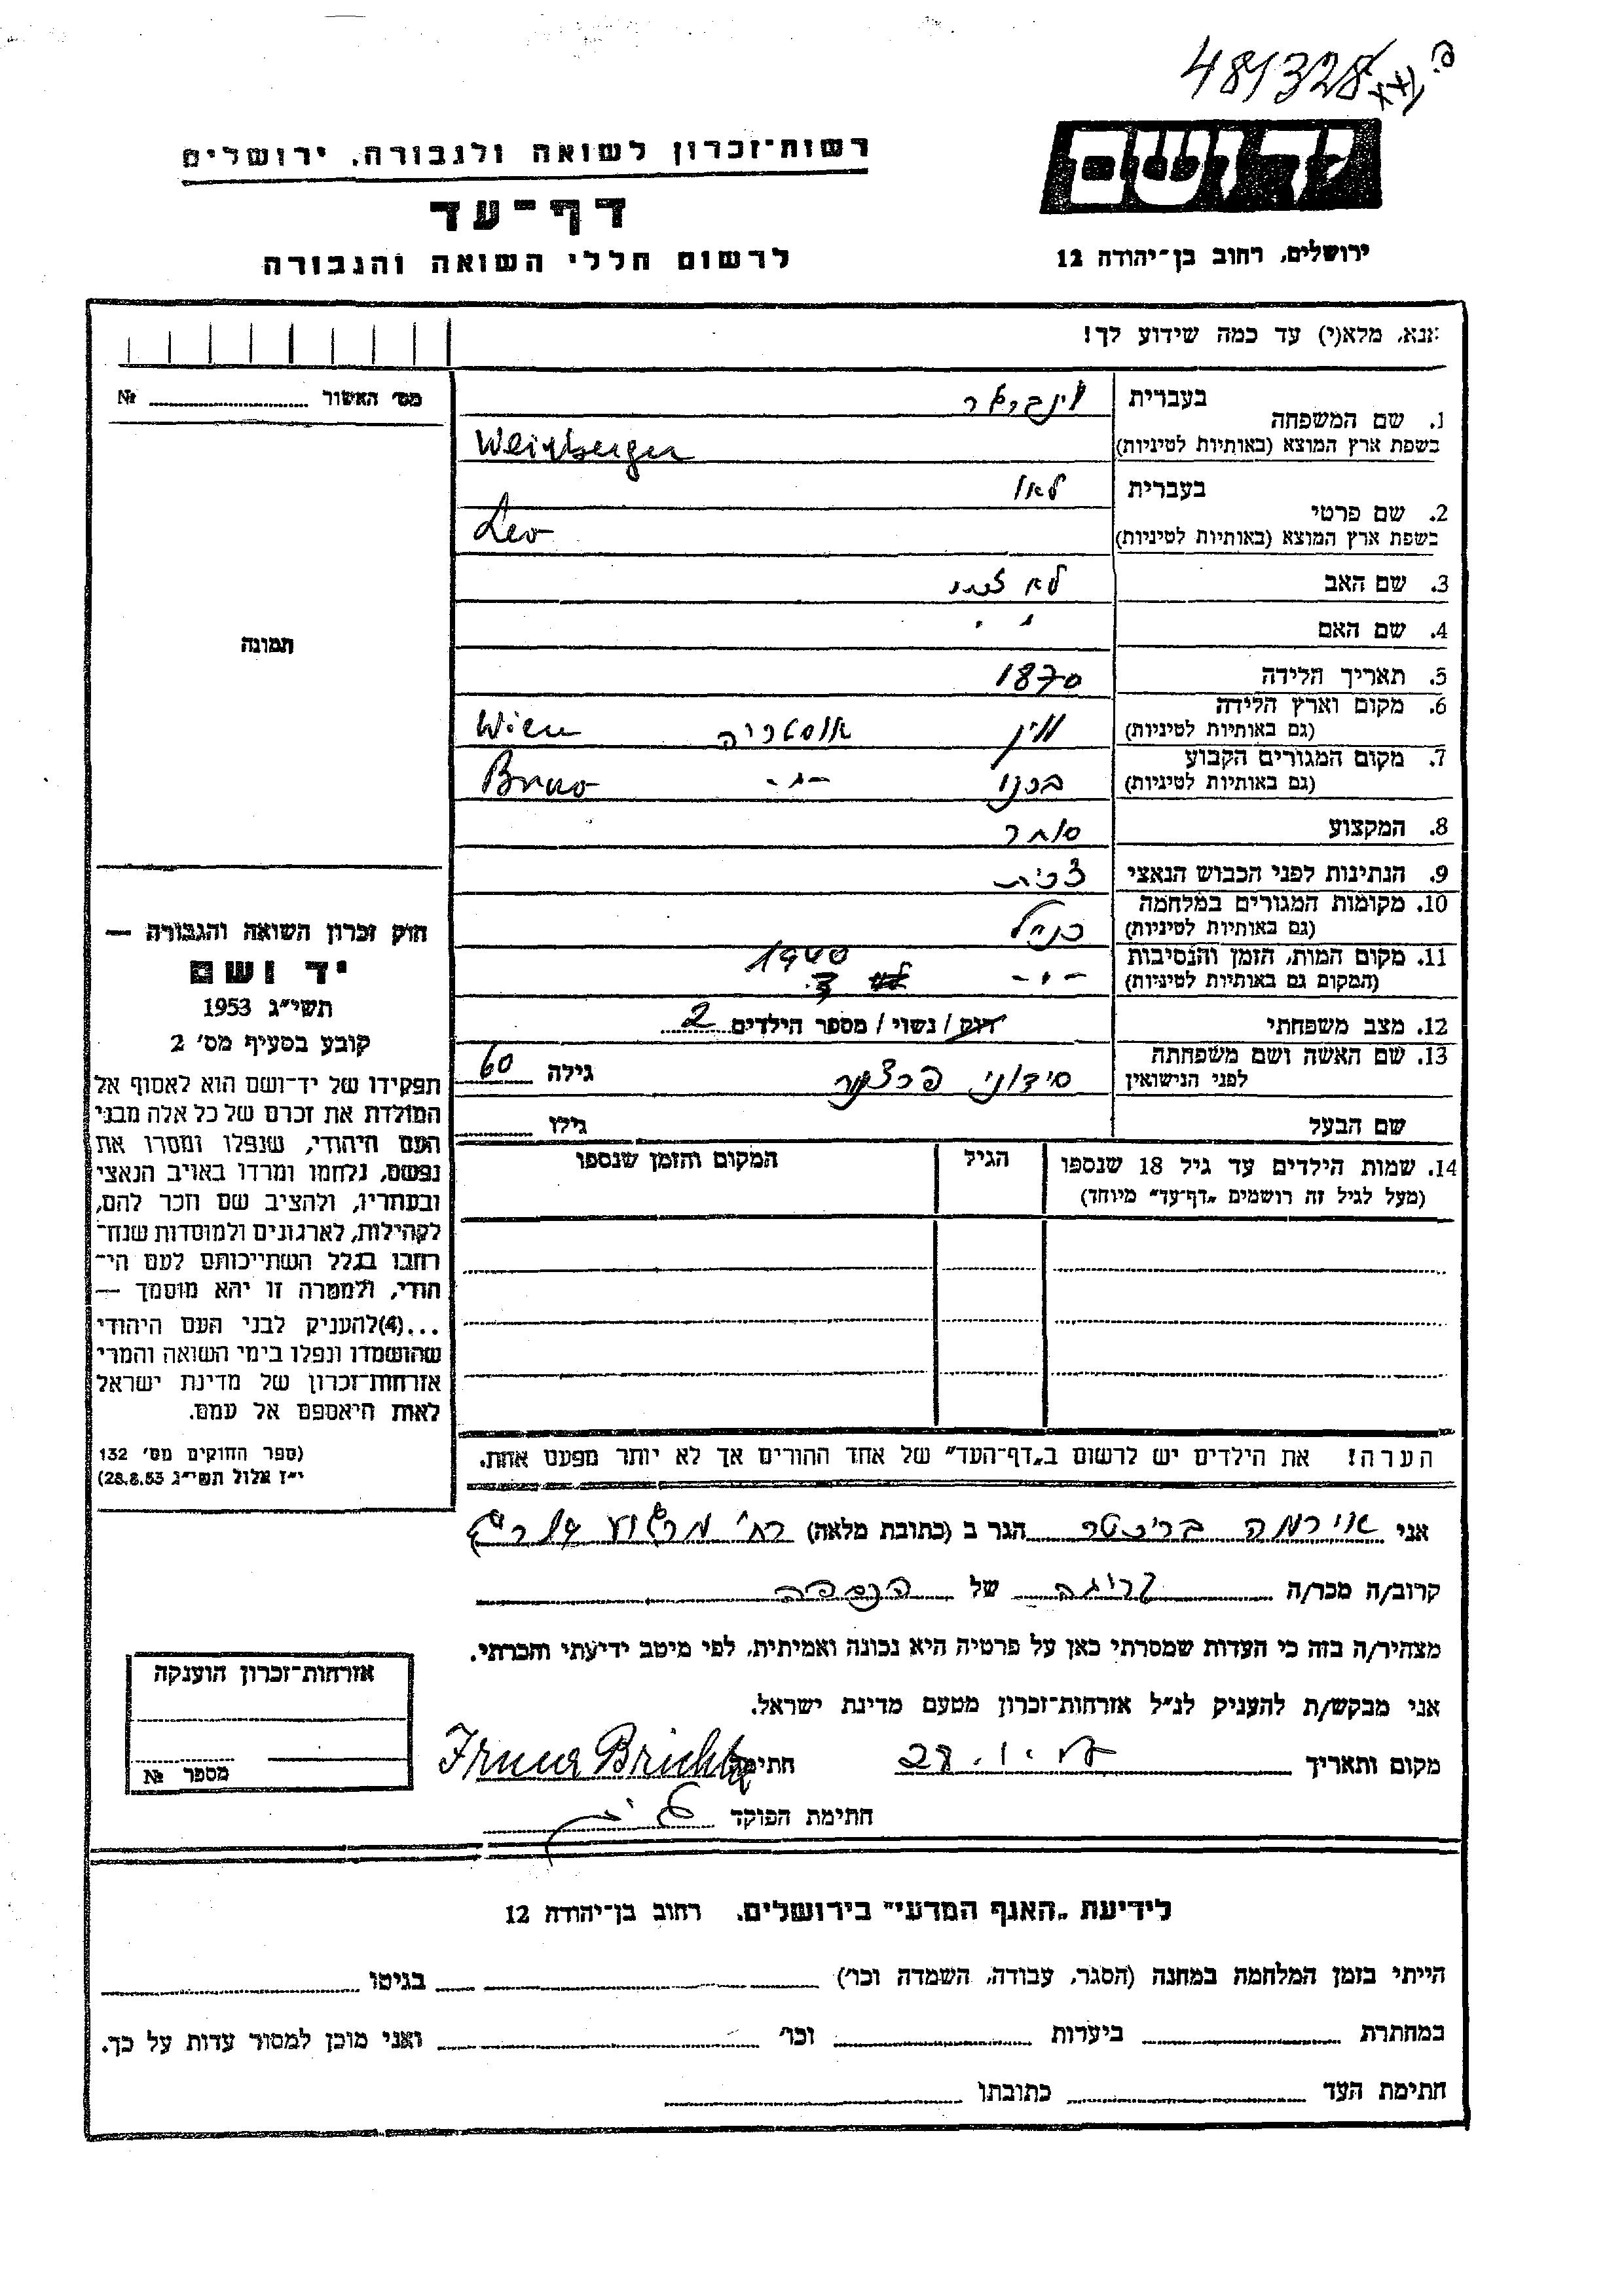 481328
יד ושם
רשות־זכרון לשואה ולגבורה, ירושלים
דף־עד
לרשום חללי השואה והגבורה
ירושלים, רחוב בן־יהודה 12
אנא, מלא(י) עד כמה שידוע לך!
מס׳ האשור № 
1. שם המשפחה
בעברית וינברגר
בשפת ארץ המוצא (באותיות לטיניות) Weinberger
2. שם פרטי
בעברית לאו
בשפת ארץ המוצא (באותיות לטיניות) Leo
3. שם האב לא
4. שם האם
5. תאריך הלידה 1870
6. מקום וארץ הלידה
(גם באותיות לטיניות) ווין אוסטריה Wien
7. מקום המגורים הקבוע
(גם באותיות לטיניות) ברנו -״- Brno
8. המקצוע סוחר
9. הנתינות לפני הכבוש הנאצי צ׳כית
10. מקומות המגורים במלחמה
(גם באותיות לטיניות) כנ״ל
11. מקום המות, הזמן והנסיבות
(המקום גם באותיות לטיניות) -״- 1940
12. מצב משפחתי רווק / נשוי / מספר הילדים 2
13. שם האשה ושם משפחתה
לפני הנישואין סידוני גילה 60
שם הבעל גילו
14. שמות הילדים עד גיל 18 שנספו
(מעל לגיל זה רושמים „דף־עד״ מיוחד)
הגיל
המקום והזמן שנספו
תמונה
חוק זכרון השואה והגבורה —
יד ושם
תשי״ג 1953
קובע בסעיף מס׳ 2
תפקידו של יד־ושם הוא לאסוף אל
המולדת את זכרם של כל אלה מבני
העם היהודי, שנפלו ומסרו את
נפשם, נלחמו ומרדו באויב הנאצי
ובעוזריו, ולהציב שם וזכר להם,
לקהילות, לארגונים ולמוסדות שנח־
רבו בגלל השתייכותם לעם הי־
הודי, ולמטרה זו יהא מוסמך —
...(4)להעניק לבני העם היהודי
שהושמדו ונפלו בימי השואה והמרי
אזרחות־זכרון של מדינת ישראל
לאות היאספם אל עמם.
(ספר החוקים מס׳ 132
י״ז אלול תשי״ג 28.8.53)
הערה! את הילדים יש לרשום ב„דף־העד״ של אחד ההורים אך לא יותר מפעם אחת.
אני אירמה בריכטה הגר ב (כתובת מלאה) רח׳
קרוב/ה מכר/ה קרובה של הנספה
מצהיר/ה בזה כי העדות שמסרתי כאן על פרטיה היא נכונה ואמיתית, לפי מיטב ידיעתי והכרתי.
אני מבקש/ת להעניק לנ״ל אזרחות־זכרון מטעם מדינת ישראל.
מקום ותאריך 28.1. חתימה Irma Brichta
חתימת הפוקד
אזרחות־זכרון הוענקה
מספר №
לידיעת „האגף המדעי״ בירושלים. רחוב בן־יהודה 12
הייתי בזמן המלחמה במחנה (הסגר, עבודה, השמדה וכו׳) בגיטו
במחתרת ביערות וכו׳ ואני מוכן למסור עדות על כך.
חתימת העד כתובתו